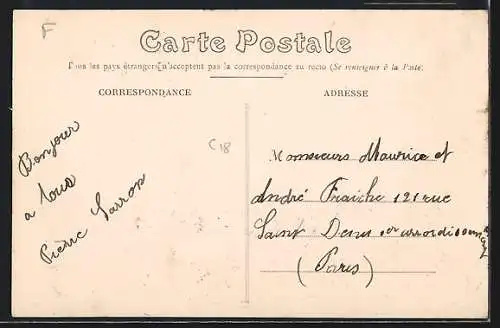 F
Carte Postale
Tous les pays étrangers n'acceptent pas la correspondance au recto (Se renseigner à la Poste)
CORRESPONDANCE
ADRESSE
C18
Bonjour
a tous
Pierre Sarron
Monsieurs Maurice et
André Fraiche 121 rue
Saint Denis 1er arrondissement
(Paris)